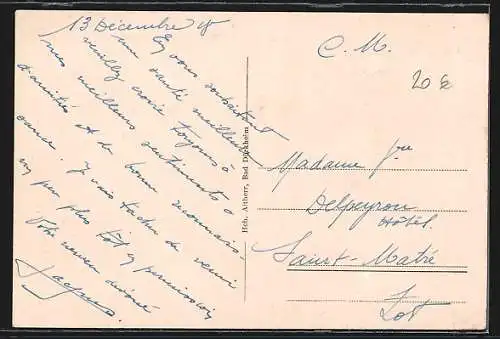 13 Décembre
En vous souhaitant
une santé meilleure
veuillez croire toujours à
mes meilleurs sentiments
d'amitiés et de bonne reconnais-
sance. J'vais tacher de venir
un peu plus tôt en permission
Votre neveu dévoué
Jacques.
Hch. Altherr, Bad Dürkheim
C. M.
20
Madame Vve
Delpeyrou
Hôtel
Saint-Matré
Lot